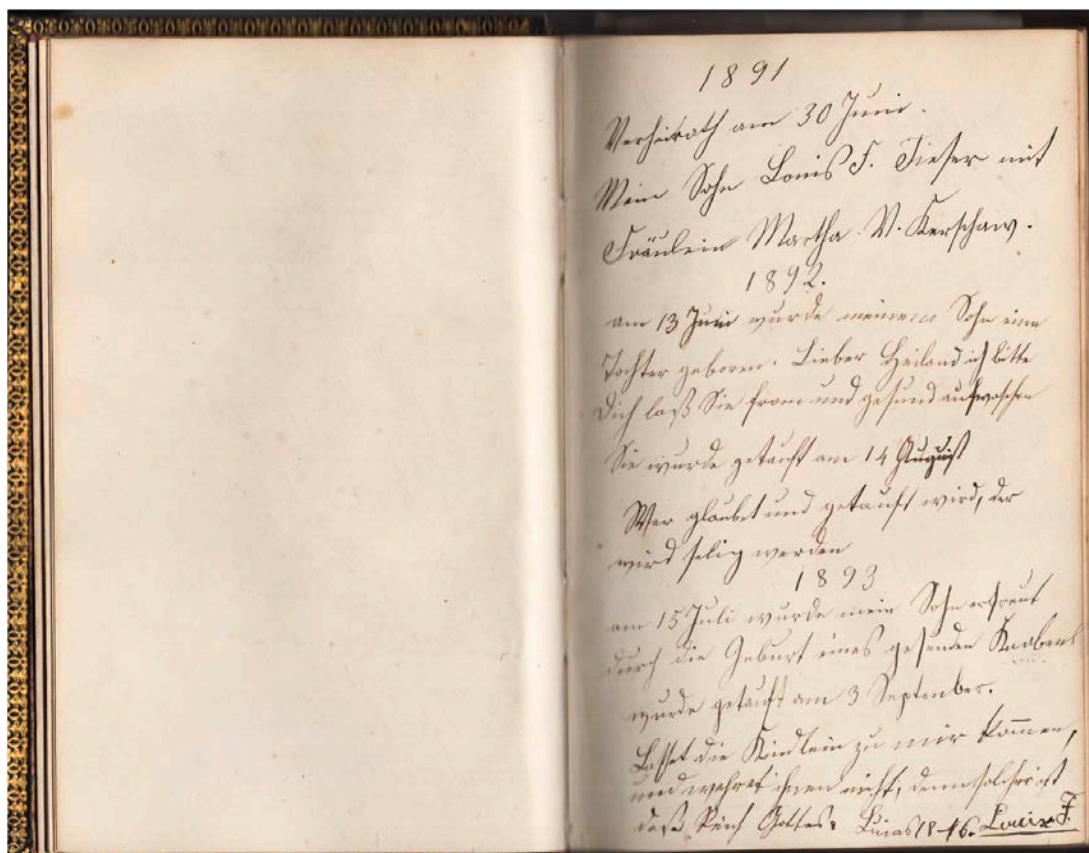 1891
Verheirath am 30 Juni.
Mein Sohn Louis F. Fieser mit
Fräulein Martha V. Kerschaw.
1892.
am 13 Juni wurde meinem Sohn eine
Tochter geboren. Lieber Heiland ich bitte
Dich laß Sie from und gesund aufwachsen
Sie wurde getauft am 14 August
Wer glaubet und getauft wird, der
wird selig werden
1893
am 15 Juli wurde mein Sohn erfreut
durch die Geburt eines gesunden Knaben
wurde getauft am 3 September.
Lasset die Kindlein zu mir kommen,
und wehret ihnen nicht, denn solcher ist
daß Reich Gottes. Lucas 18-16. Louis F.